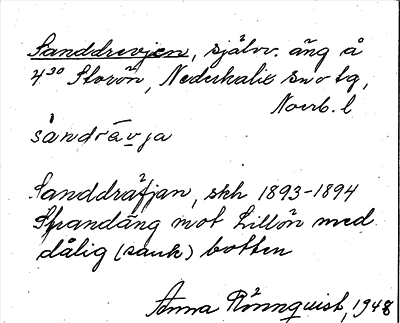 Sanddrevjen, självv. äng å
4³⁰ Storön, Nederkalix sn o tg,
Norrb. l
sandrävja
Sanddräfjan, skh 1893-1894
Strandäng mot Lillön med
dålig (sank) botten
Anna Rönnquist, 1948